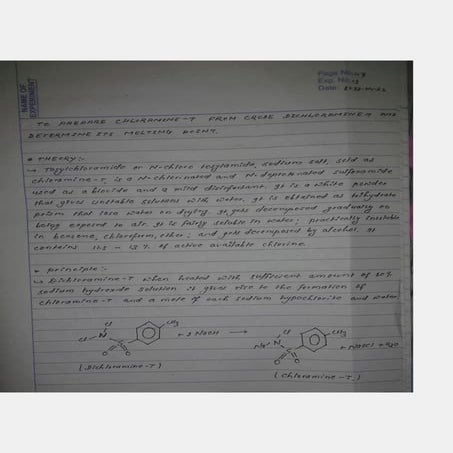 NAME OF
EXPERIMENT
Page No.
Exp. No.
Date:
TO PREPARE CHLORAMINE-T FROM CRUDE DICHLORAMINE-T AND
DETERMINE ITS MELTING POINT.
THEORY:-
→ Tosylchloramide or N-chloro tosylamide, sodium salt, sold as
chloramine-T, is a N-chlorinated and N-deprotonated sulfonamide
used as a biocide and a mild disinfectant. It is a white powder
that gives unstable solutions with water. It is obtained as trihydrate
prism that lose water on drying. It gets decomposed gradually on
being exposed to air. It is fairly soluble in water; practically insoluble
in benzene, chloroform, ether; and gets decomposed by alcohol. It
contains 11.5 - 13 % of active available chlorine.
Principle:-
→ Dichloramine-T when heated with sufficient amount of
sodium hydroxide solution it gives rise to the formation of
chloramine-T and a mole of each sodium hypochlorite and water.
Cl
CH3
Cl
CH3
Cl-N
+ 2 NaOH
Na
N
+ NaOCl + H2O
S
S
O
O
O
O
(Dichloramine-T)
(Chloramine-T.)